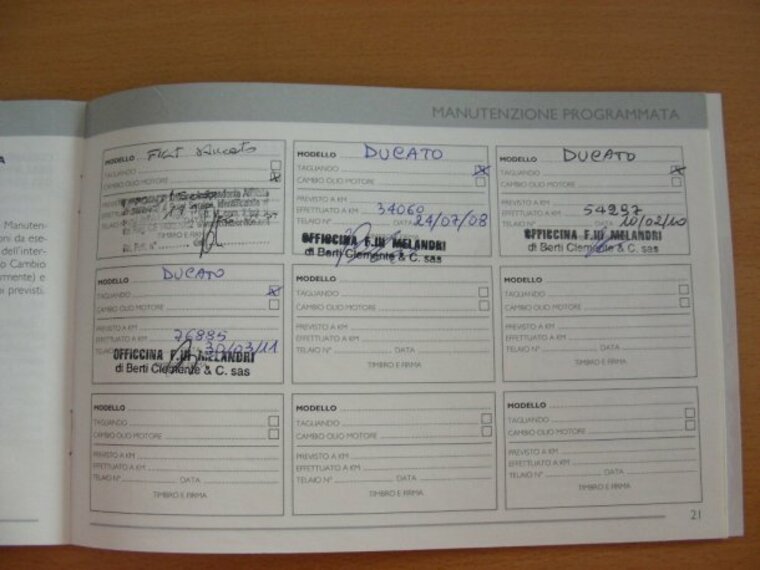 MANUTENZIONE PROGRAMMATA
A
Manuten-
oni da ese-
dell'inter-
o Cambio
rmente) e
i previsti.
MODELLO Fiat Ducato
TAGLIANDO
CAMBIO OLIO MOTORE
PREVISTO A KM
MODELLO DUCATO
TAGLIANDO
CAMBIO OLIO MOTORE
PREVISTO A KM
EFFETTUATO A KM 34060
TELAIO N° 24/07/08
OFFICCINA F.lli MELANDRI
di Berti Clemente & C. sas
MODELLO DUCATO
TAGLIANDO
CAMBIO OLIO MOTORE
PREVISTO A KM
EFFETTUATO A KM 54297
TELAIO N° 10/02/10
OFFICCINA F.lli MELANDRI
di Berti Clemente & C. sas
MODELLO DUCATO
TAGLIANDO
CAMBIO OLIO MOTORE
PREVISTO A KM
EFFETTUATO A KM 76885
TELAIO 30/03/11
OFFICCINA F.lli MELANDRI
di Berti Clemente & C. sas
MODELLO
TAGLIANDO
CAMBIO OLIO MOTORE
PREVISTO A KM
EFFETTUATO A KM
TELAIO N° DATA
TIMBRO E FIRMA
MODELLO
TAGLIANDO
CAMBIO OLIO MOTORE
PREVISTO A KM
EFFETTUATO A KM
TELAIO N° DATA
TIMBRO E FIRMA
MODELLO
TAGLIANDO
CAMBIO OLIO MOTORE
PREVISTO A KM
EFFETTUATO A KM
TELAIO N° DATA
TIMBRO E FIRMA
MODELLO
TAGLIANDO
CAMBIO OLIO MOTORE
PREVISTO A KM
EFFETTUATO A KM
TELAIO N° DATA
TIMBRO E FIRMA
MODELLO
TAGLIANDO
CAMBIO OLIO MOTORE
PREVISTO A KM
EFFETTUATO A KM
TELAIO N° DATA
TIMBRO E FIRMA
21